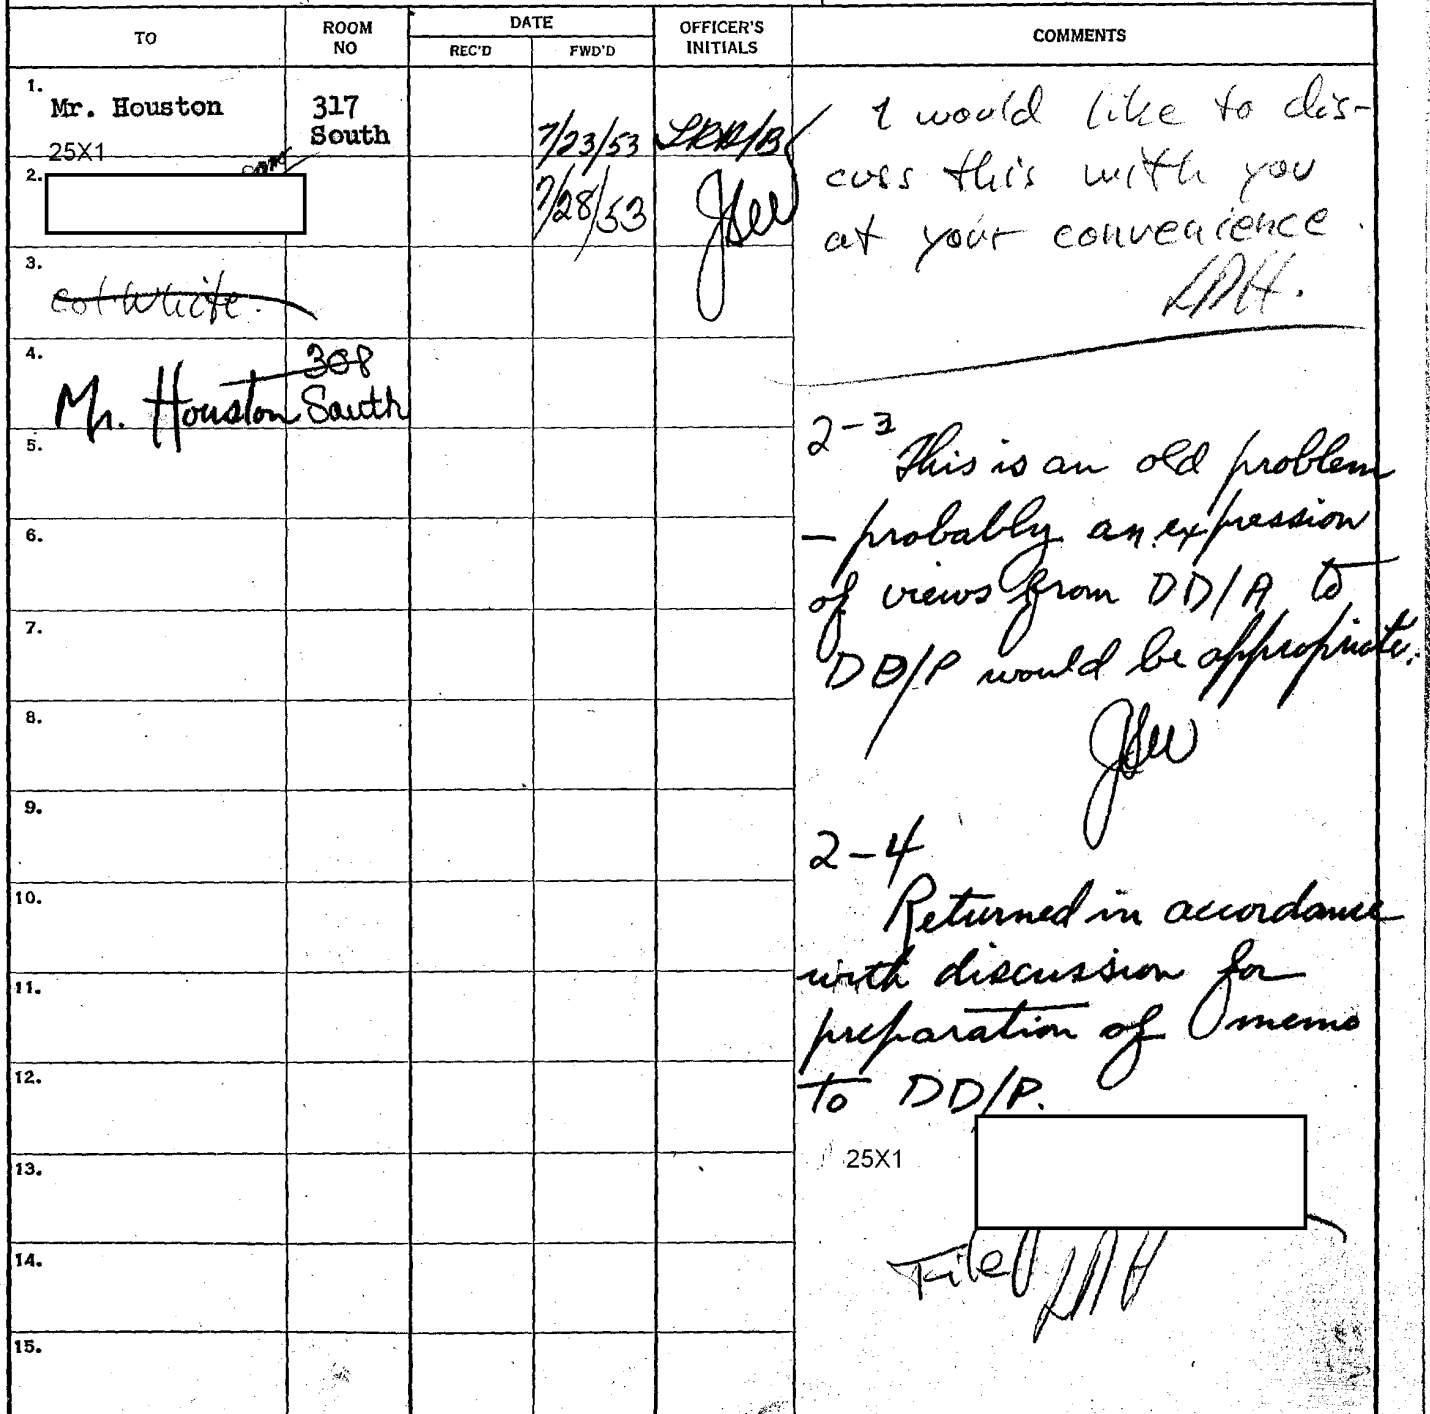 TO
ROOM NO
DATE
REC'D
FWD'D
OFFICER'S INITIALS
COMMENTS
1.
Mr. Houston
317
South
7/23/53
25X1
2.
7/28/53
I would like to dis-
cuss this with you
at your convenience.
LRH.
3.
Col White.
4.
Mr. Houston
308
South
5.
2-3
This is an old problem
- probably an expression
of views from DD/A to
DD/P would be appropriate.
6.
7.
8.
9.
2-4
Returned in accordance
with discussion for
preparation of memo
to DD/P.
10.
11.
12.
13.
25X1
14.
File
LRH
15.